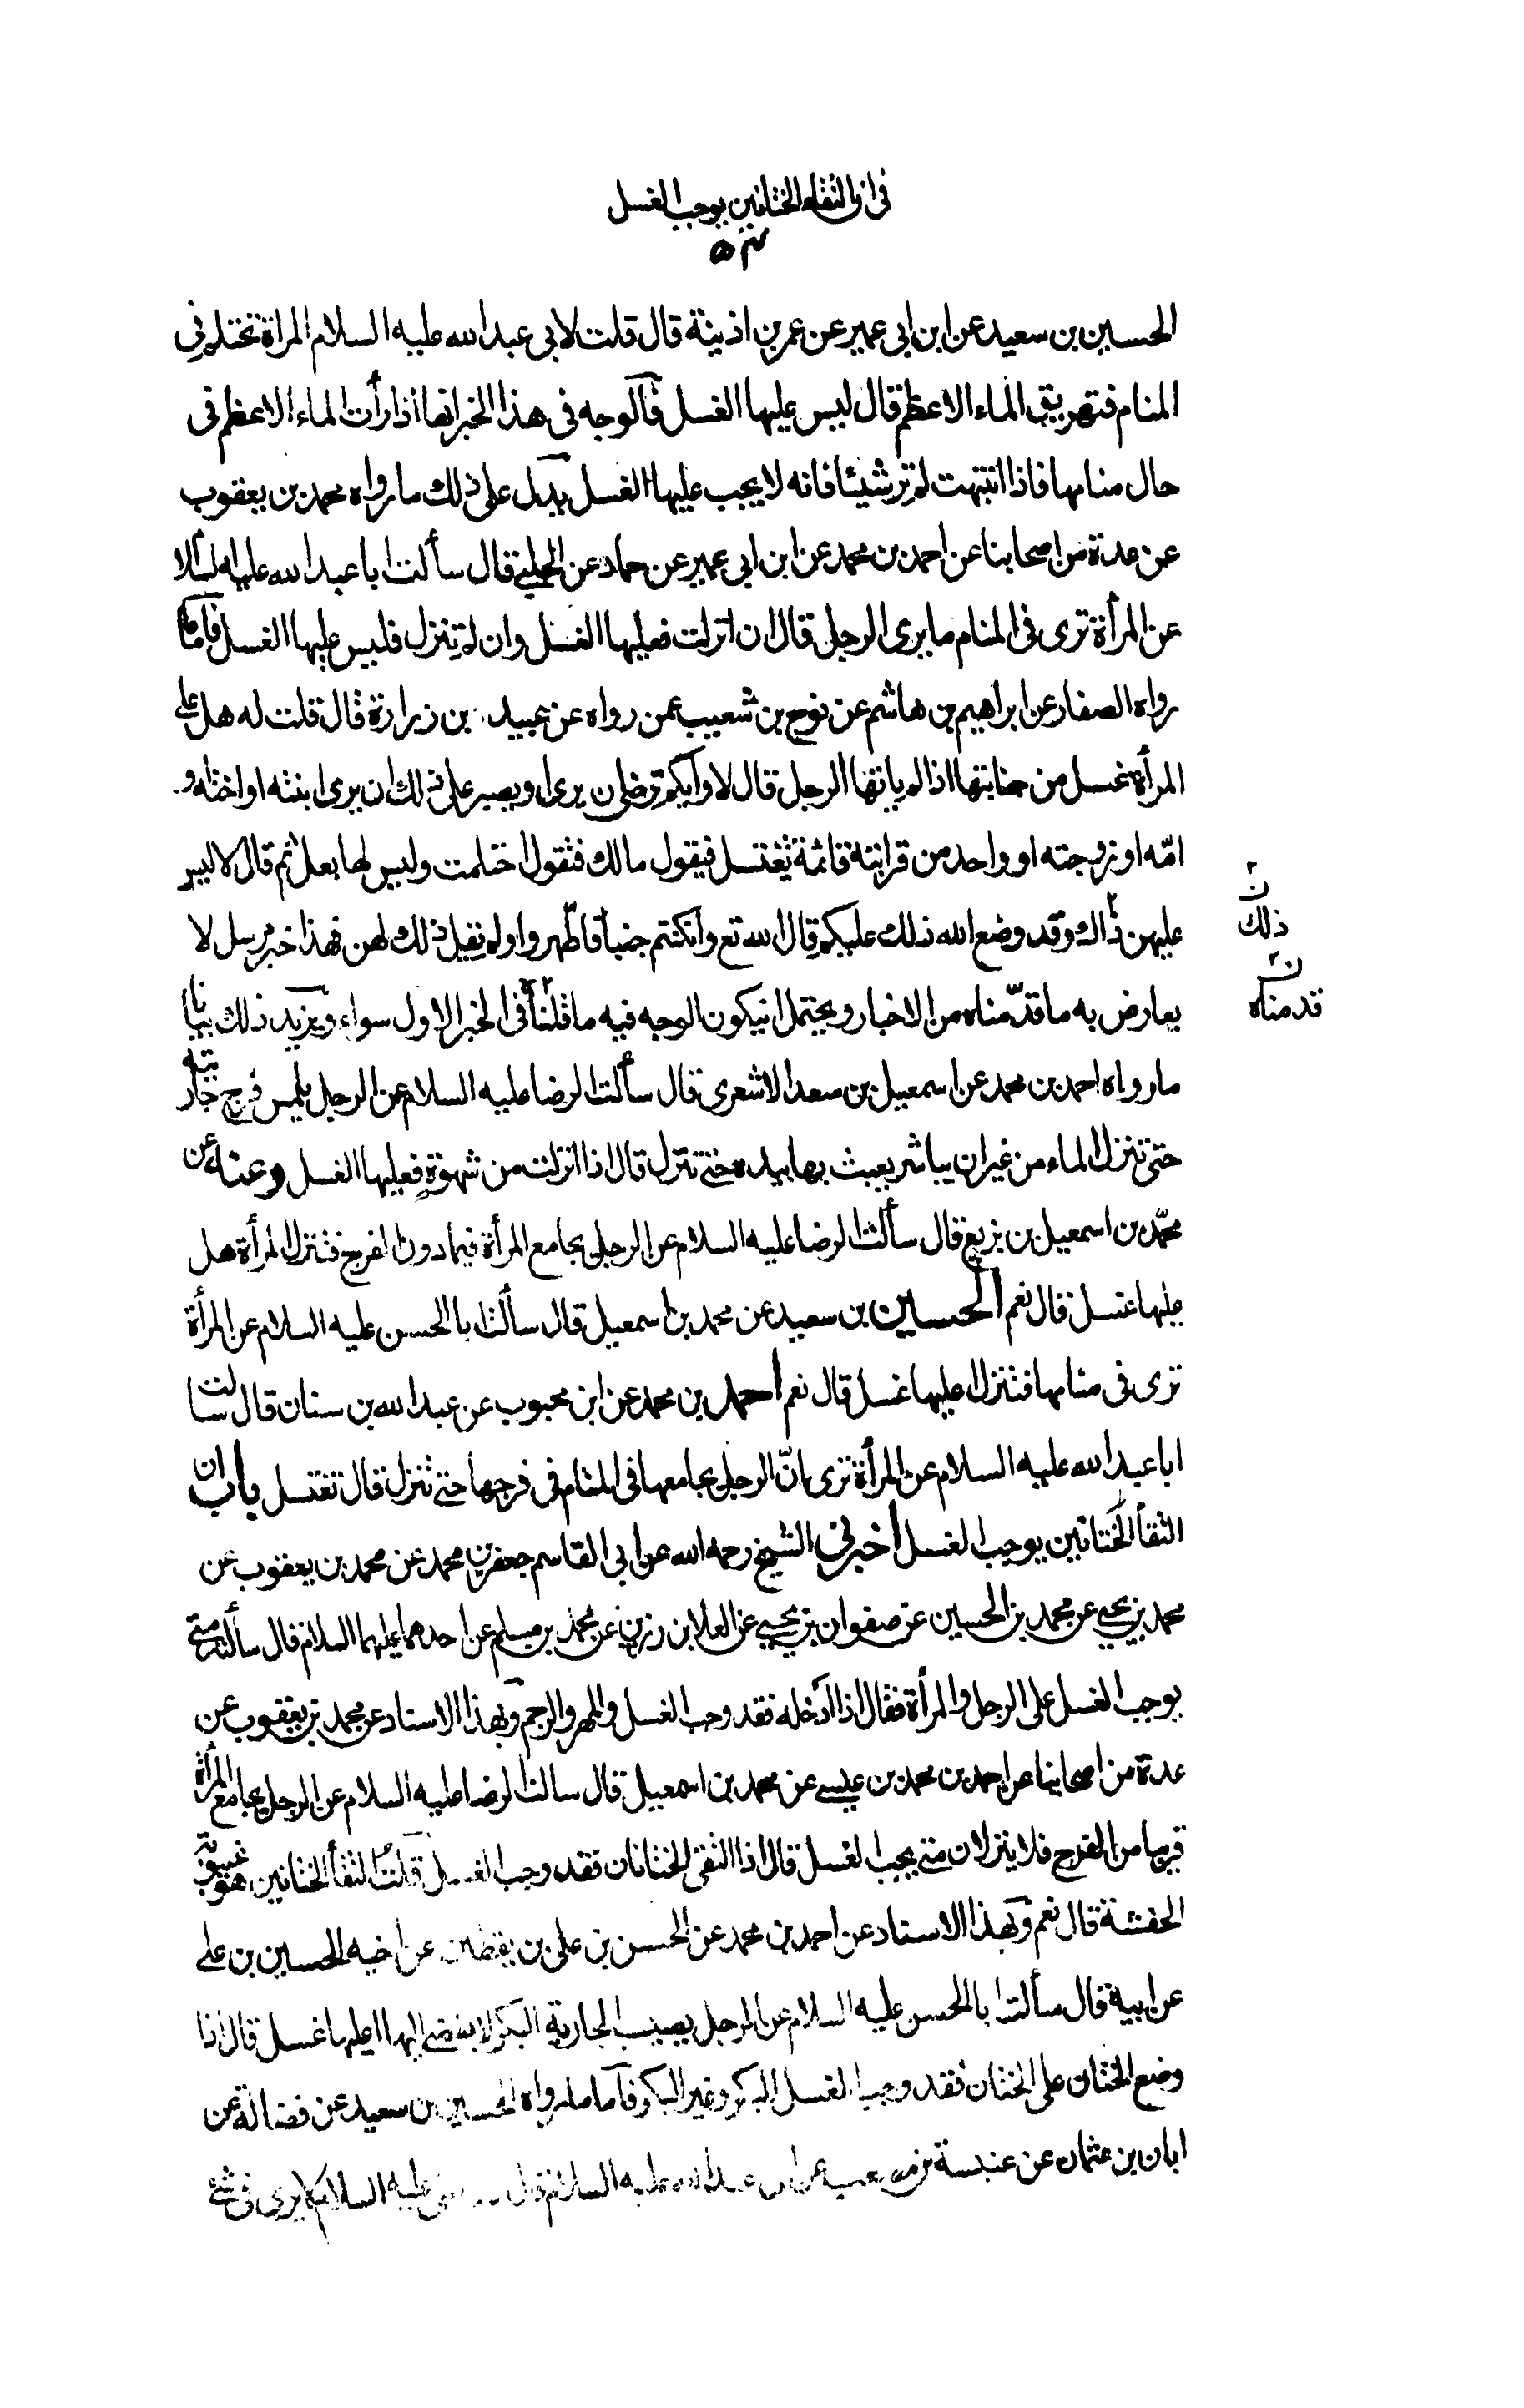 فى ان التقاء الختانين يوجب الغسل
٥٣
الحسين بن سعيد عن ابن ابى عمير عن عمر بن اذينة قال قلت لابى عبد الله عليه السلام المراة تحتلم فى
المنام فتهريق الماء الاعظم قال ليس عليها الغسل فالوجه فى هذا الخبر انها اذا رأت الماء الاعظم فى
حال منامها فاذا انتبهت لم تر شيئا فانه لا يجب عليها الغسل يدل على ذلك ما رواه محمد بن يعقوب
عن عدة من اصحابنا عن احمد بن محمد عن ابن ابى عمير عن حماد عن الحلبى قال سألت ابا عبد الله عليه السلا
عن المرأة ترى فى المنام ما يرى الرجل قال ان انزلت فعليها الغسل وان لم تنزل فليس عليها الغسل فاما ما
رواه الصفار عن ابراهيم بن هاشم عن نوح بن شعيب عمن رواه عن عبيد بن زرارة قال قلت له هل على
المرأة غسل من جنابتها اذا لم ياتها الرجل قال لا وايكم يرضى ان يرى او يصبر على ذلك ان يرى ابنته او اخته و
امّه او زوجته او واحد من قرابته قائمة تغتسل فيقول مالك فتقول احتلمت وليس لها بعل ثم قال لا ليس
عليهن ذاك وقد وضع الله ذلك عليكم قال الله تع وان كنتم جنبا فاطّهروا ولم يقل ذلك لهن فهذا خبر مرسل لا
يعارض به ما قدّمناه من الاخبار ويحتمل ان يكون الوجه فيه ما قلنا فى الخبر الاول سواء ويزيد ذلك بيانا
ما رواه احمد بن محمد عن اسمعيل بن سعد الاشعرى قال سألت الرضا عليه السلام عن الرجل يلمس فرج جاريته
حتى تنزل الماء من غير ان يباشر يعبث بها بيده حتى تنزل قال اذا انزلت من شهوة فعليها الغسل وعنه عن
محمّد بن اسمعيل بن بزيع قال سألت الرضا عليه السلام عن الرجل يجامع المرأة فيما دون الفرج فتنزل المرأة هل
عليها غسل قال نعم الحسين بن سعيد عن محمد بن اسمعيل قال سألت ابا الحسن عليه السلام عن المرأة
ترى فى منامها فتنزل عليها غسل قال نعم احمد بن محمد عن ابن محبوب عن عبد الله بن سنان قال سالت
ابا عبد الله عليه السلام عن المرأة ترى انّ الرجل يجامعها فى المنام فى فرجها حتى تنزل قال تغتسل باب ان
التقأ الختانين يوجب الغسل أخبرنى الشيخ رحمه الله عن ابى القاسم جعفر بن محمد عن محمد بن يعقوب عن
محمد بن يحيى عن محمد بن الحسين عن صفوان بن يحيى عن العلا بن رزين عن محمد بن مسلم عن احدهما عليهما السلام قال سألته متى
يوجب الغسل على الرجل والمرأة فقال اذا ادخله فقد وجب الغسل والمهر والرجم وبهذا الاسناد عن محمد بن يعقوب عن
عدة من اصحابنا عن احمد بن محمد بن عيسى عن محمد بن اسمعيل قال سالت الرضا عليه السلام عن الرجل يجامع المرأة
قريبا من الفرج فلا ينزلان متى يجب الغسل قال اذا التقى الختانان فقد وجب الغسل قلت التقأ الختانين هو غيبوبة
الحفشة قال نعم وبهذا الاسناد عن احمد بن محمد عن الحسن بن على بن يقطين عن اخيه الحسين بن على
عن ابيه قال سألت ابا الحسن عليه السلام عن الرجل يصيب الجارية البكر لا يفضى اليها اعليها غسل قال اذا
وضع الختان على الختان فقد وجب الغسل البكر وغير البكر فاما ما رواه الحسين بن سعيد عن فضالة عن
ابان بن عثمان عن عنبسة بن مصعب عن ابى عبد الله عليه السلام قال على عليه السلام لا يرى فى شئ
ن
ذلك
ن
قدمناه